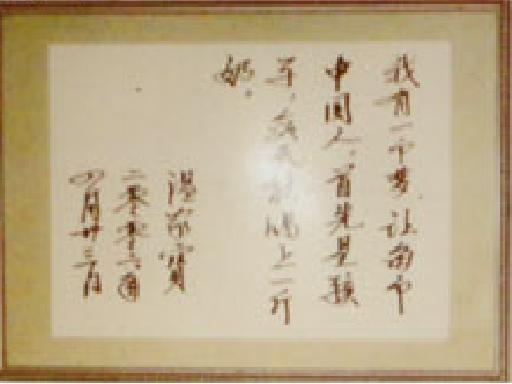 我有一个梦，让每个
中国人，首先是孩
子，每天都能喝上一斤
奶。
温家寶
二零零六年
四月廿三日